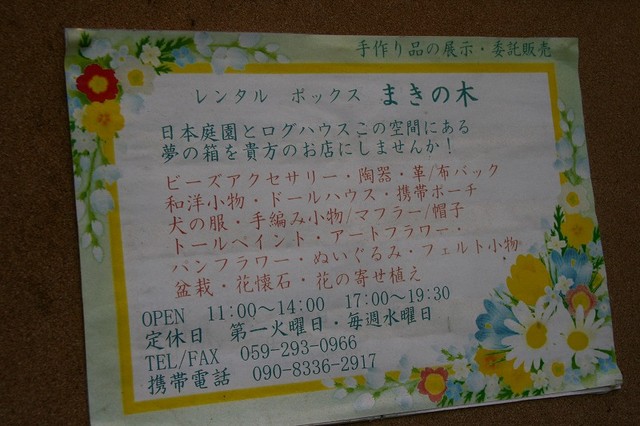 手作り品の展示・委託販売
レンタル ボックス まきの木
日本庭園とログハウスこの空間にある
夢の箱を貴方のお店にしませんか！
ビーズアクセサリー・陶器・革/布バック
和洋小物・ドールハウス・携帯ポーチ
犬の服・手編み小物/マフラー/帽子
トールペイント・アートフラワー・
パンフラワー・ぬいぐるみ・フェルト小物
盆栽・花懐石・花の寄せ植え
OPEN 11:00～14:00 17:00～19:30
定休日 第一火曜日・毎週水曜日
TEL/FAX 059-293-0966
携帯電話 090-8336-2917